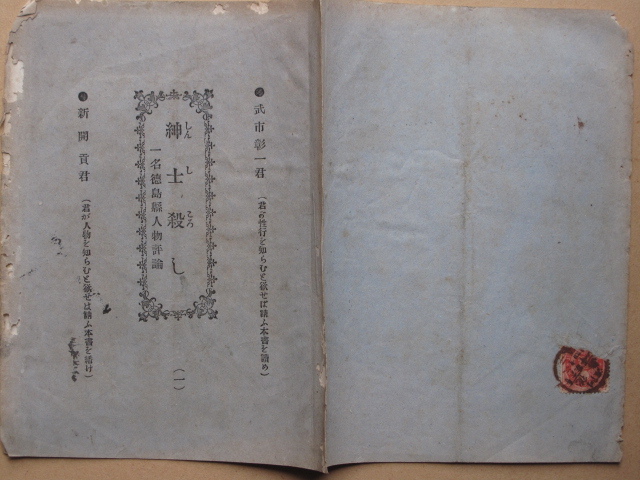 ●武市彰一君（君の性行を知らむと欲せば請ふ本書を繙め）
紳士殺し
しんしころ
一名徳島縣人物評論
（一）
●新開貢君（君が人物を知らむと欲せば請ふ本書を繙け）